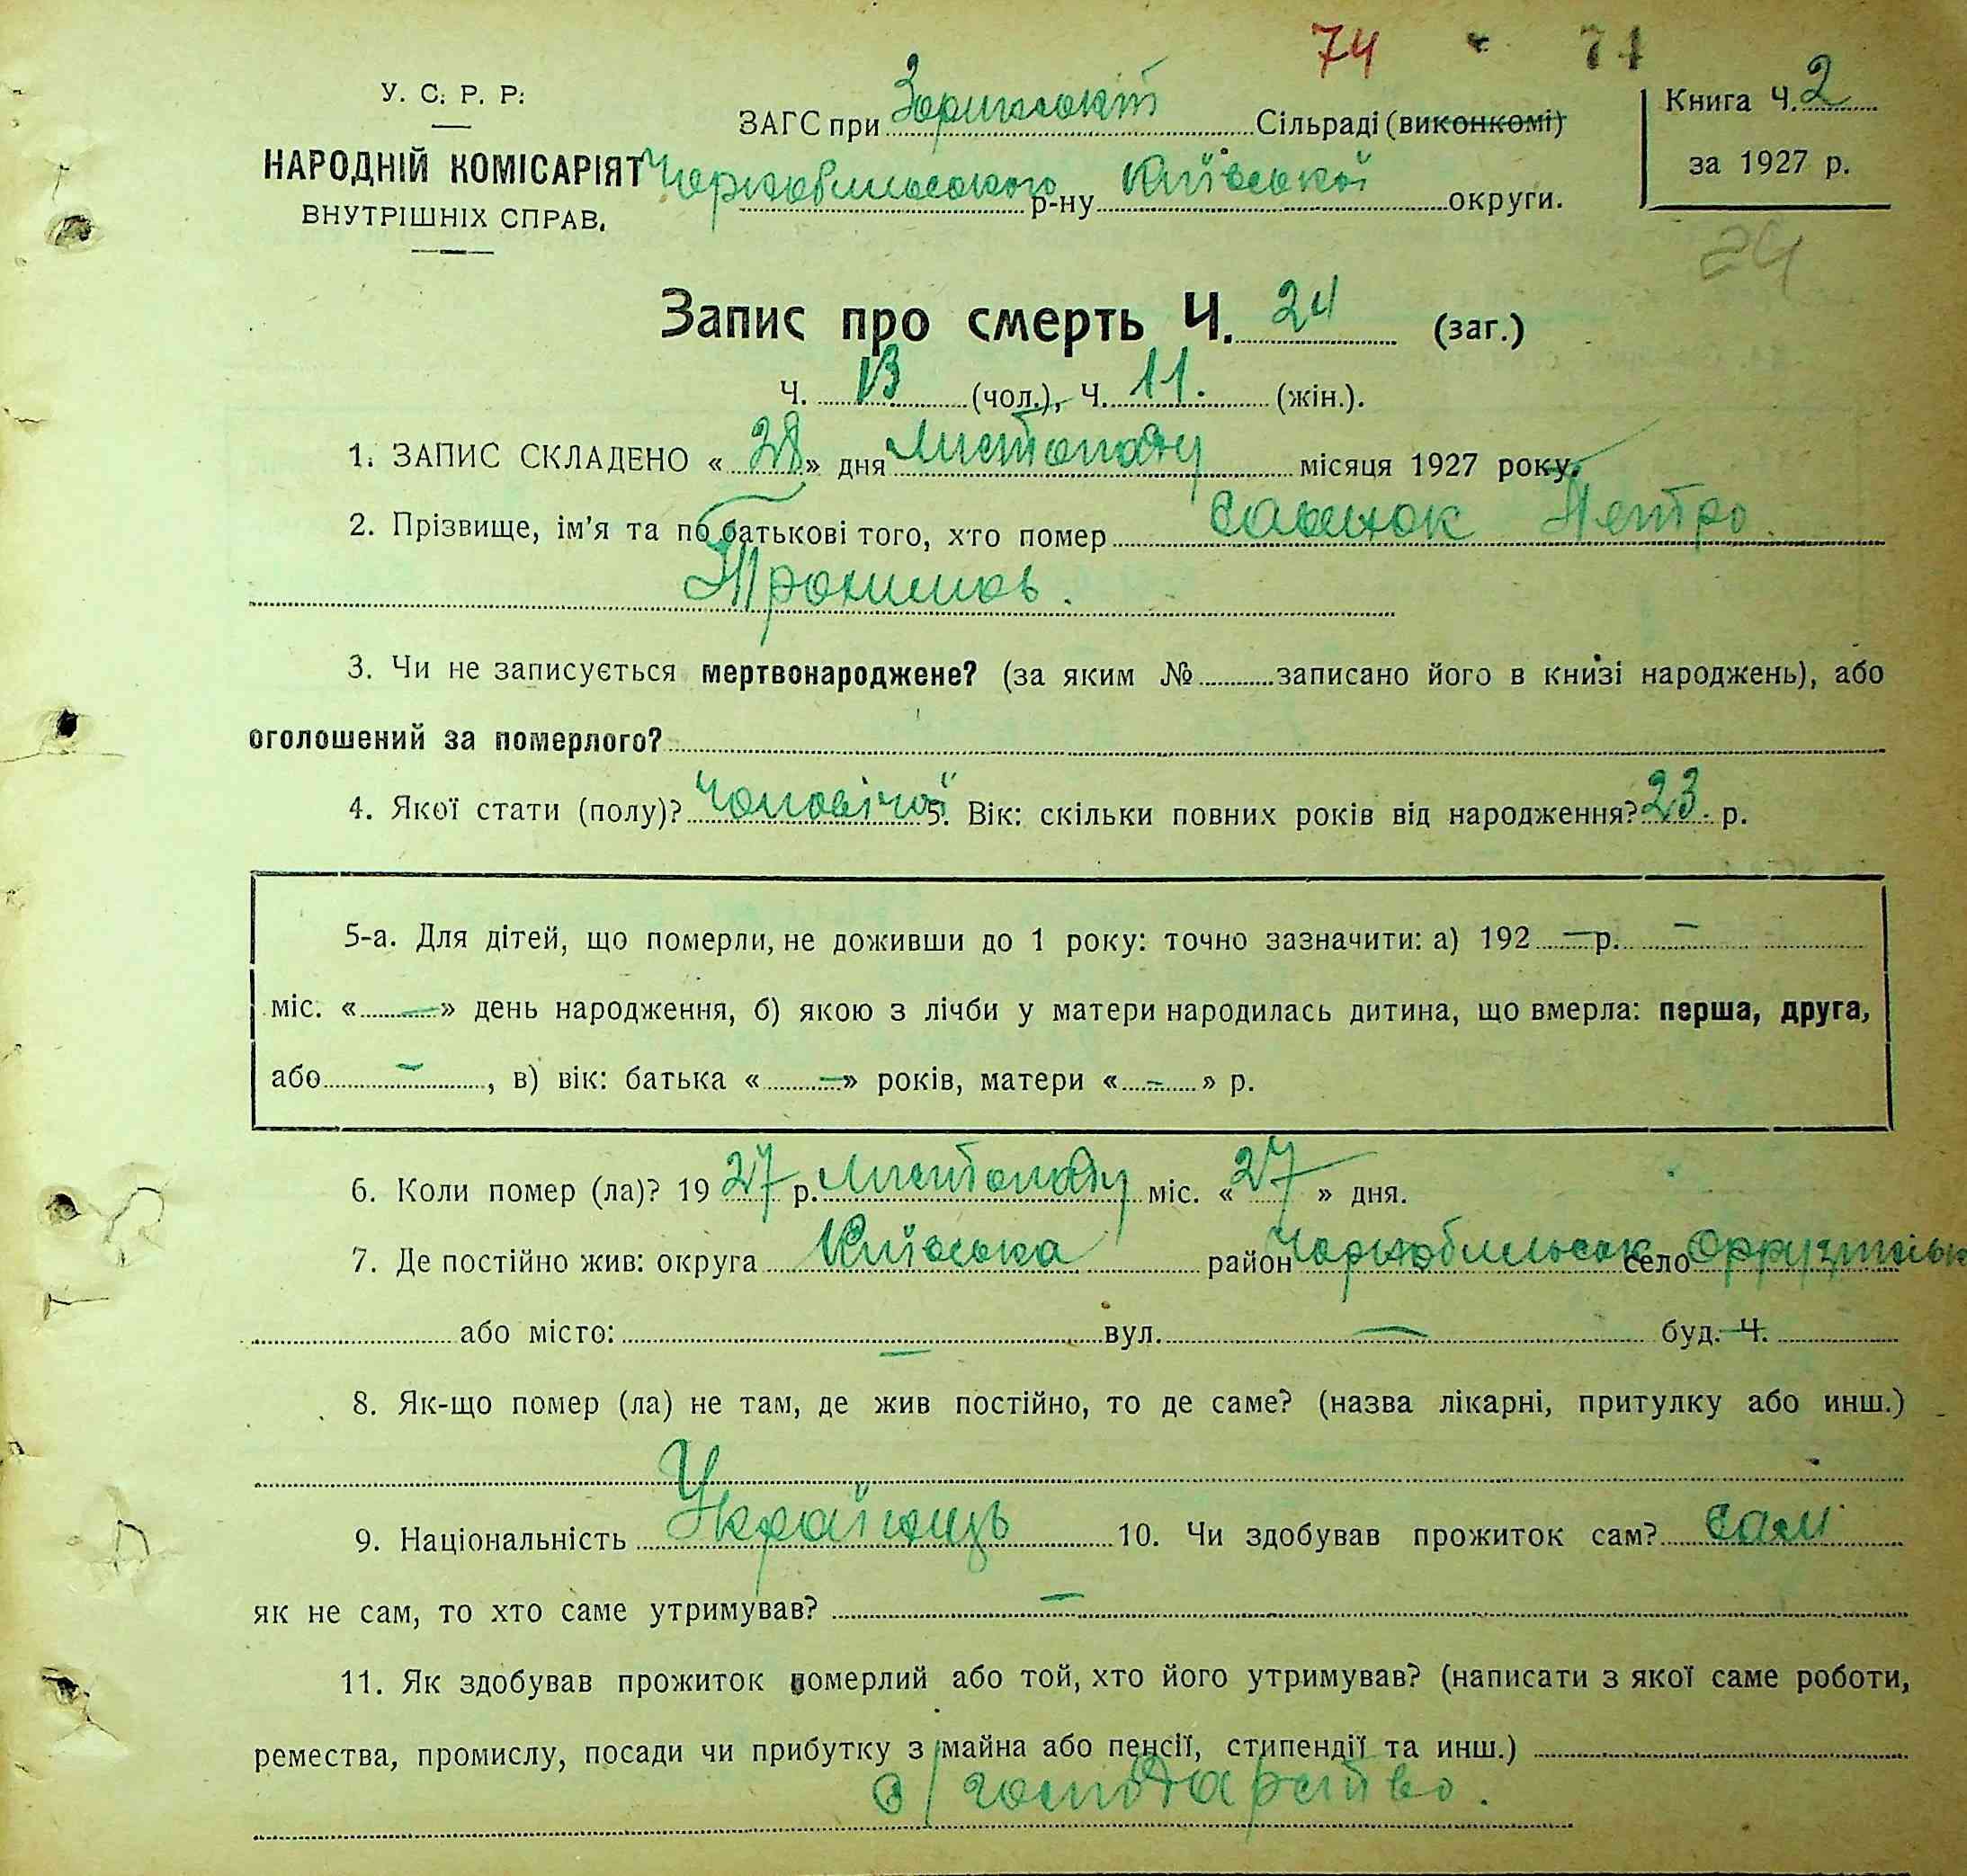 74 71
У. С. Р. Р.
НАРОДНІЙ КОМІСАРІЯТ
ВНУТРІШНІХ СПРАВ.
ЗАГС при Зоринській Сільраді (виконкомі)
Чернобильського р-ну Київської округи.
Книга Ч. 2
за 1927 р.
24
Запис про смерть Ч. 24 (заг.)
Ч. 13 (чол.), Ч. 11. (жін.).
1. ЗАПИС СКЛАДЕНО «28» дня Листопаду місяця 1927 року.
2. Прізвище, ім'я та по батькові того, хто помер Савенок Петро
Трохимов.
3. Чи не записується мертвонароджене? (за яким № записано його в книзі народжень), або
оголошений за померлого?
4. Якої стати (полу)? Чоловічої 5. Вік: скільки повних років від народження? 23. р.
5-а. Для дітей, що померли, не доживши до 1 року: точно зазначити: а) 192 — р. —
міс. «—» день народження, б) якою з лічби у матери народилась дитина, що вмерла: перша, друга,
або —, в) вік: батька «—» років, матери «—» р.
6. Коли помер (ла)? 1927 р. Листопаду міс. «27» дня.
7. Де постійно жив: округа Київська район Чорнобильськ село
або місто: — вул. — буд. Ч.
8. Як-що помер (ла) не там, де жив постійно, то де саме? (назва лікарні, притулку або инш.)
9. Національність Українець 10. Чи здобував прожиток сам? сам
як не сам, то хто саме утримував? —
11. Як здобував прожиток померлий або той, хто його утримував? (написати з якої саме роботи,
ремества, промислу, посади чи прибутку з майна або пенсії, стипендії та инш.)
с/господарство.